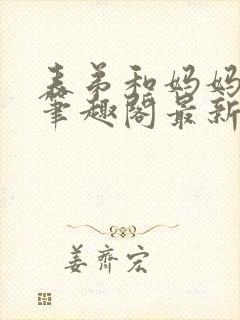 表弟和妈妈
笔趣阁最新
姜齐宏